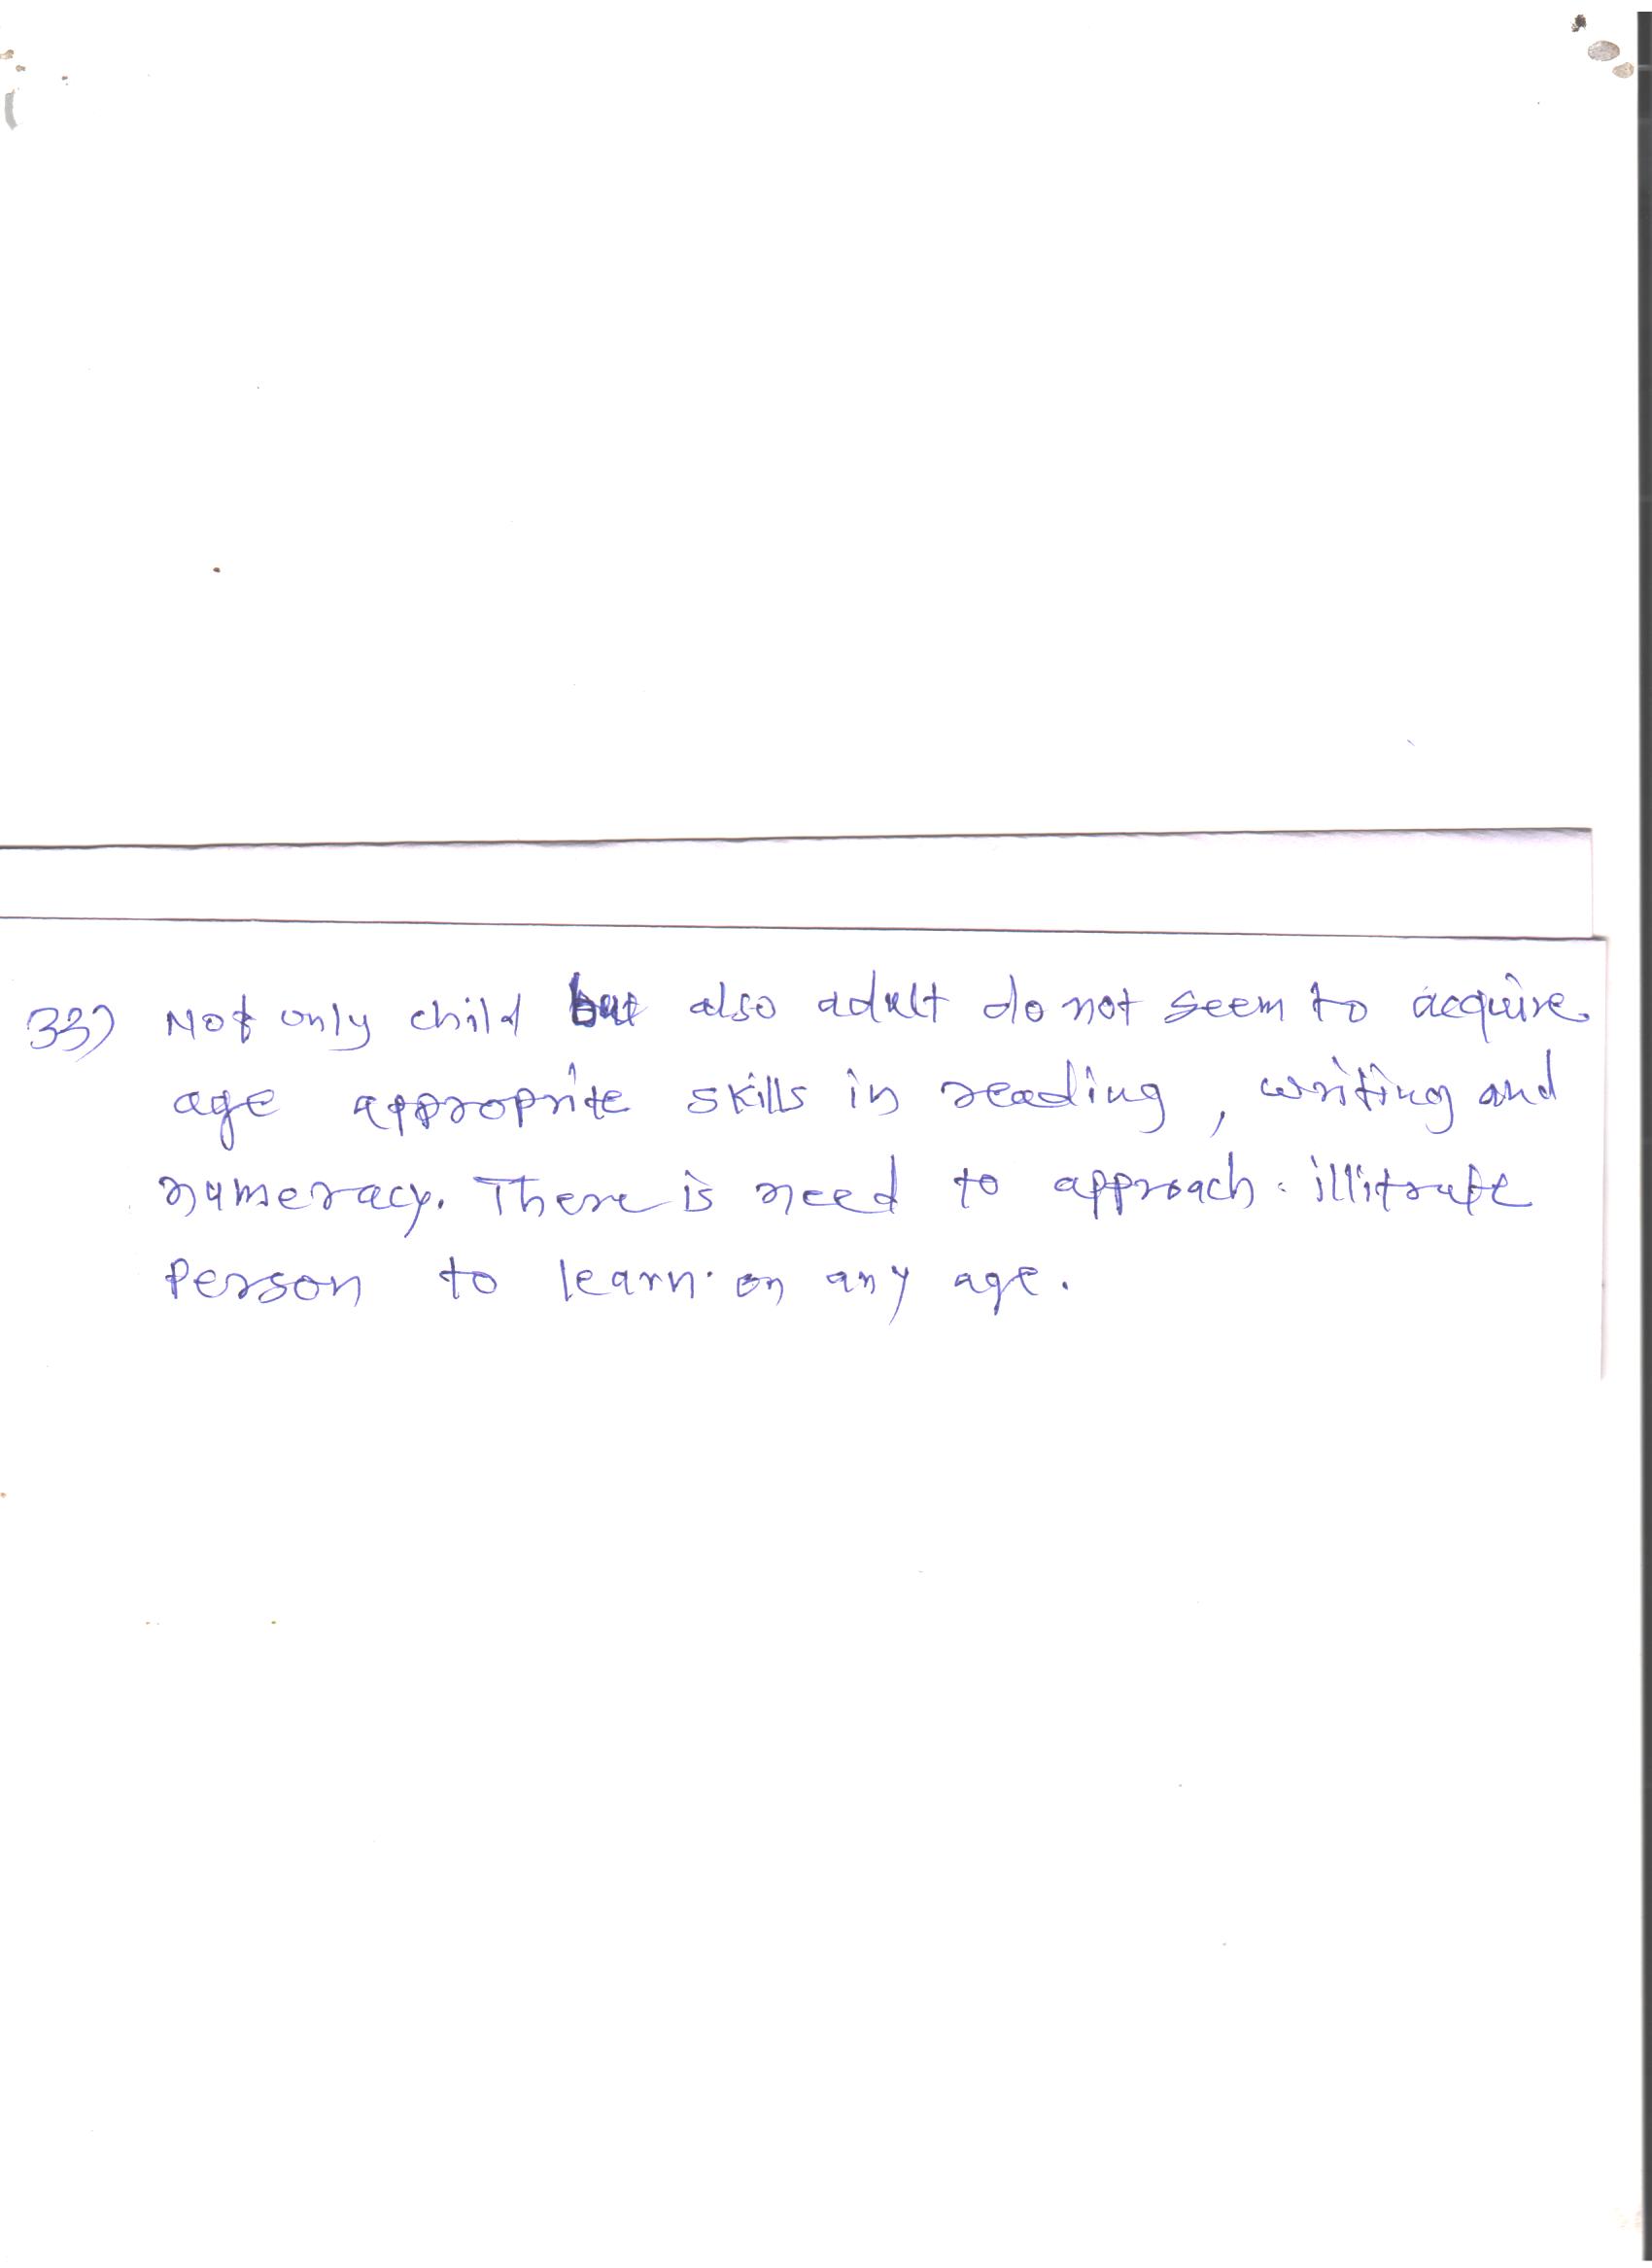 33) Not only child but also adult do not seem to acquire
age approprite skills in reading, writing and
numeracy. There is need to approach illitrate
person to learn on any age.